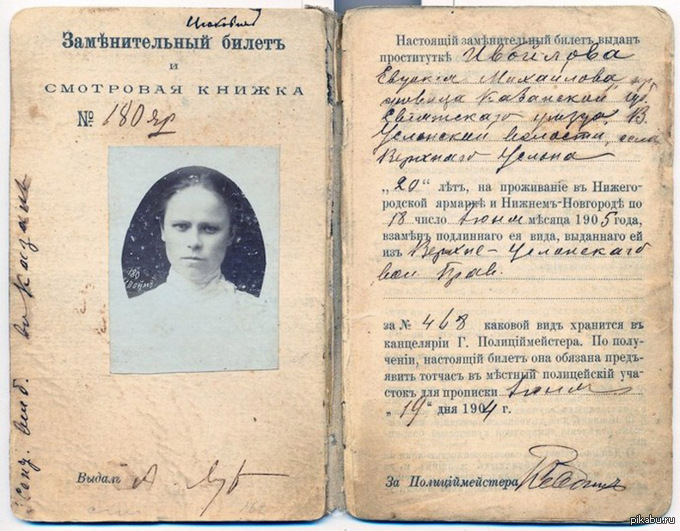 Замѣнительный билетъ
и
СМОТРОВАЯ КНИЖКА
№ 180 яр
180
Выдалъ
во Казань
Настоящій замѣнительный билетъ выданъ
проституткѣ Ивойлова
Евдокія Михайлова, кр
Казанской губ
уѣзда, В.
Услонской волости, села
Верхняго Услона
„20“ лѣтъ, на проживаніе въ Нижего-
родской ярмаркѣ и Нижнемъ-Новгородѣ по
18 число Іюня мѣсяца 1905 года,
взамѣнъ подлиннаго ея вида, выданнаго ей
изъ Верхне-Услонскаго
вол Прав.
за № 468 каковой видъ хранится въ
канцеляріи Г. Полиціймейстера. По полу-
ченіи, настоящій билетъ она обязана предъ-
явить тотчасъ въ мѣстный полицейскій уча-
стокъ для прописки Іюня
„19“ дня 1904 г.
За Полиціймейстера
pikabu.ru